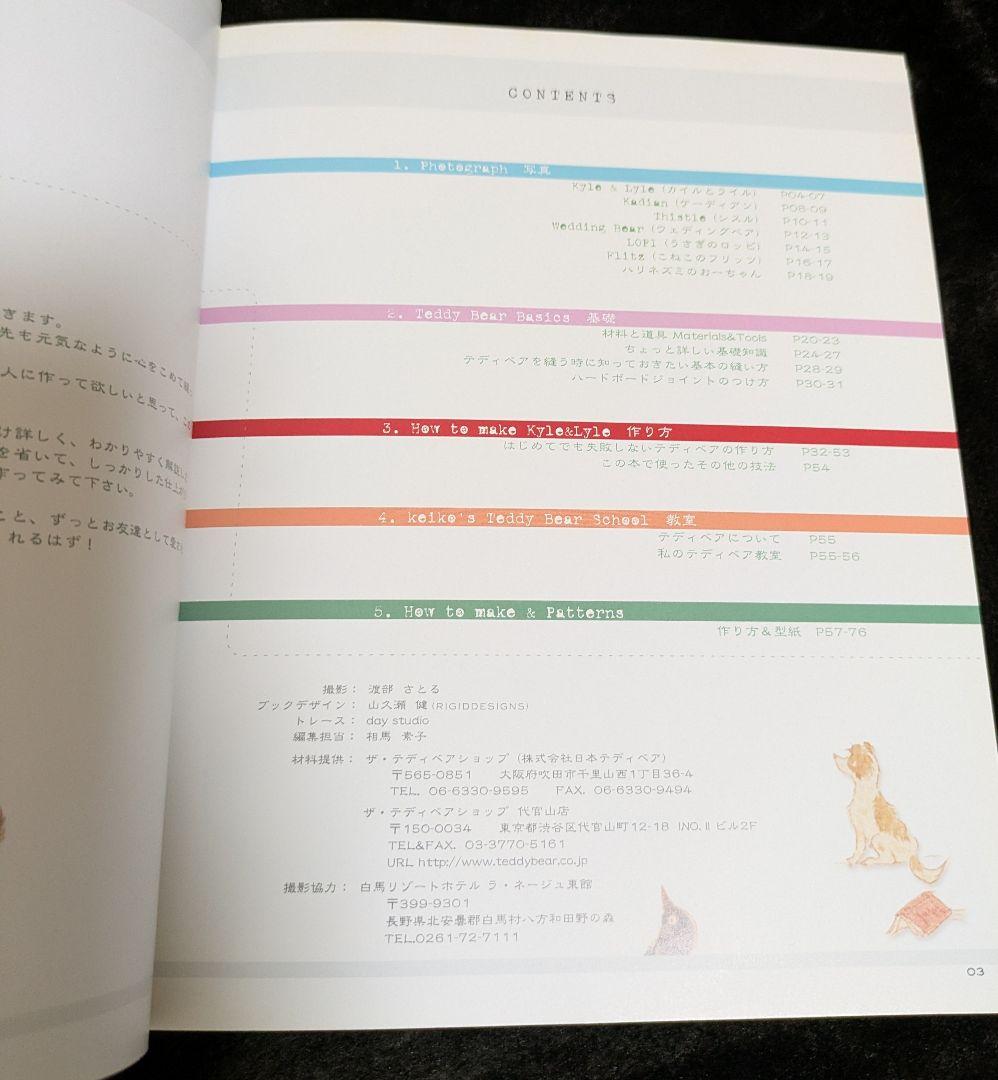 きます。
先も元気なように心をこめて
人に作って欲しいと思って、こ
け詳しく、わかりやすく解説し
を省いて、しっかりした仕上が
作ってみて下さい。
こと、ずっとお友達として愛
れるはず！
CONTENTS
1. Photograph 写真
Kyle & Lyle (カイルとライル) P04-07
Kadian (ケーディアン) P08-09
Thistle (シスル) P10-11
Wedding Bear (ウェディングベア) P12-13
LOPI (うさぎのロッピ) P14-15
Flitz (こねこのフリッツ) P16-17
ハリネズミのおーちゃん P18-19
2. Teddy Bear Basics 基礎
材料と道具 Materials&Tools P20-23
ちょっと詳しい基礎知識 P24-27
テディベアを縫う時に知っておきたい基本の縫い方 P28-29
ハードボードジョイントのつけ方 P30-31
3. How to make Kyle&Lyle 作り方
はじめてでも失敗しないテディベアの作り方 P32-53
この本で使ったその他の技法 P54
4. keiko's Teddy Bear School 教室
テディベアについて P55
私のテディベア教室 P55-56
5. How to make & Patterns
作り方＆型紙 P57-76
撮影： 渡部 さとる
ブックデザイン： 山久瀬 健(RIGIDDESIGNS)
トレース： day studio
編集担当： 相馬 素子
材料提供： ザ・テディベアショップ (株式会社日本テディベア)
〒565-0851 大阪府吹田市千里山西1丁目36-4
TEL. 06-6330-9595 FAX. 06-6330-9494
ザ・テディベアショップ 代官山店
〒150-0034 東京都渋谷区代官山町12-18 INO.Ⅱビル2F
TEL&FAX. 03-3770-5161
URL http://www.teddybear.co.jp
撮影協力： 白馬リゾートホテル ラ・ネージュ東館
〒399-9301
長野県北安曇郡白馬村八方和田野の森
TEL.0261-72-7111
03